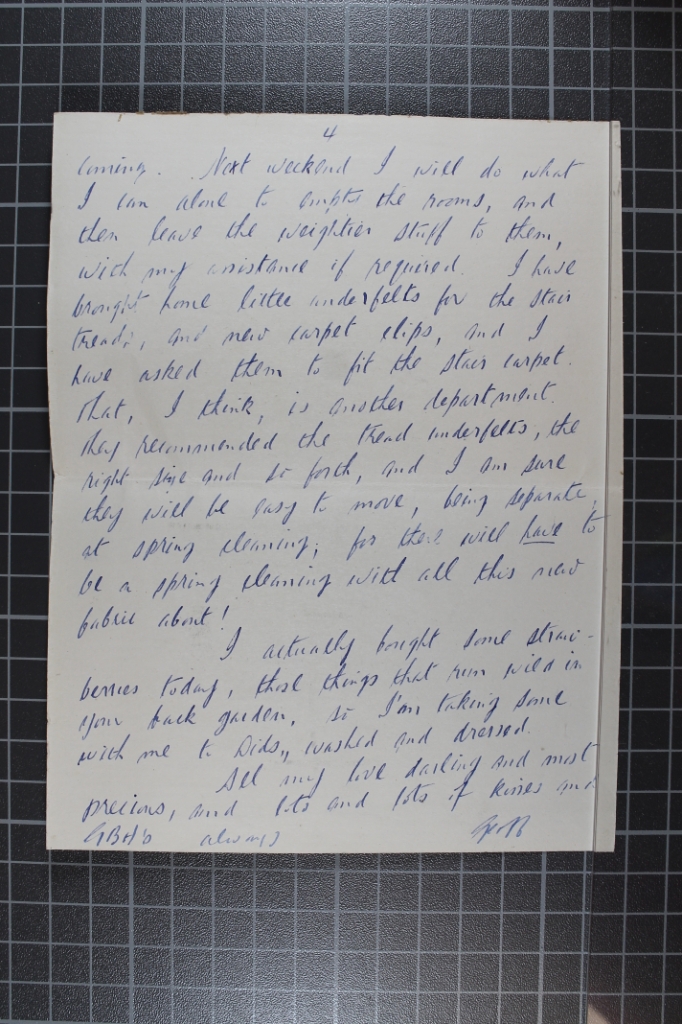 4
coming. Next weekend I will do what
I can alone to empty the rooms, and
then leave the weightier stuff to them,
with my assistance if required. I have
brought home little underfelts for the stair
treads, and new carpet clips, and I
have asked them to fit the stair carpet.
That, I think, is another department.
They recommended the tread underfelts, the
right size and so forth, and I am sure
they will be easy to move, being separate,
at spring cleaning; for there will have to
be a spring cleaning with all this new
fabric about!
I actually bought some straw-
berries today, those things that run wild in
your back garden, so I'm taking some
with me to Dids., washed and dressed.
All my love darling and most
precious, and lots and lots of kisses and
GBH's always Geoff